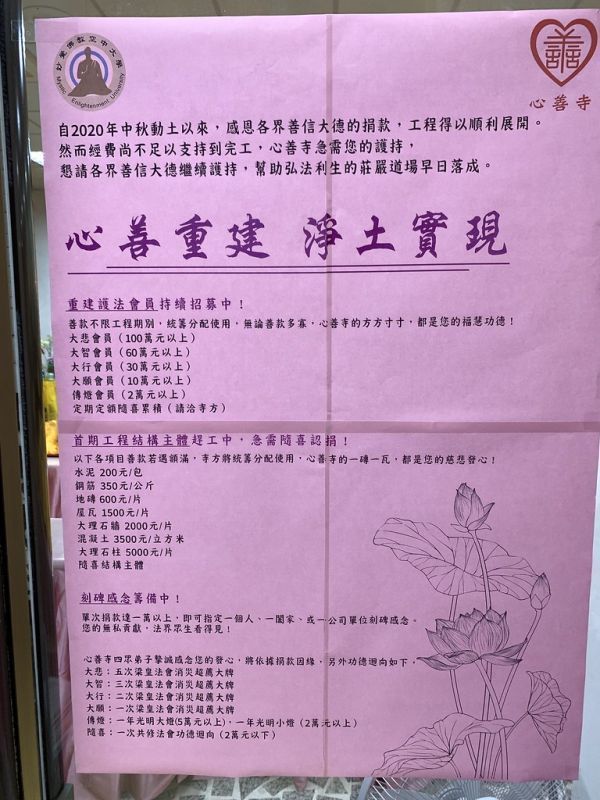 妙覺佛教空中大學
Mystic Enlightenment University
善
心善寺
自2020年中秋動土以來，感恩各界善信大德的捐款，工程得以順利展開。
然而經費尚不足以支持到完工，心善寺急需您的護持，
懇請各界善信大德繼續護持，幫助弘法利生的莊嚴道場早日落成。
心善重建 淨土實現
重建護法會員持續招募中！
善款不限工程期別，統籌分配使用，無論善款多寡，心善寺的方方寸寸，都是您的福慧功德！
大悲會員（100萬元以上）
大智會員（60萬元以上）
大行會員（30萬元以上）
大願會員（10萬元以上）
傳燈會員（2萬元以上）
定期定額隨喜累積（請洽寺方）
首期工程結構主體趕工中，急需隨喜認捐！
以下各項目善款若遇額滿，寺方將統籌分配使用，心善寺的一磚一瓦，都是您的慈悲發心！
水泥 200元/包
鋼筋 350元/公斤
地磚 600元/片
屋瓦 1500元/片
大理石牆 2000元/片
混凝土 3500元/立方米
大理石柱 5000元/片
隨喜結構主體
刻碑感念籌備中！
單次捐款達一萬以上，即可指定一個人、一闔家、或一公司單位刻碑感念。
您的無私貢獻，法界眾生看得見！
心善寺四眾弟子摯誠感念您的發心，將依據捐款因緣，另外功德迴向如下。
大悲：五次梁皇法會消災超薦大牌
大智：三次梁皇法會消災超薦大牌
大行：二次梁皇法會消災超薦大牌
大願：一次梁皇法會消災超薦大牌
傳燈：一年光明大燈(5萬元以上)，一年光明小燈（2萬元以上）
隨喜：一次共修法會功德迴向（2萬元以下）